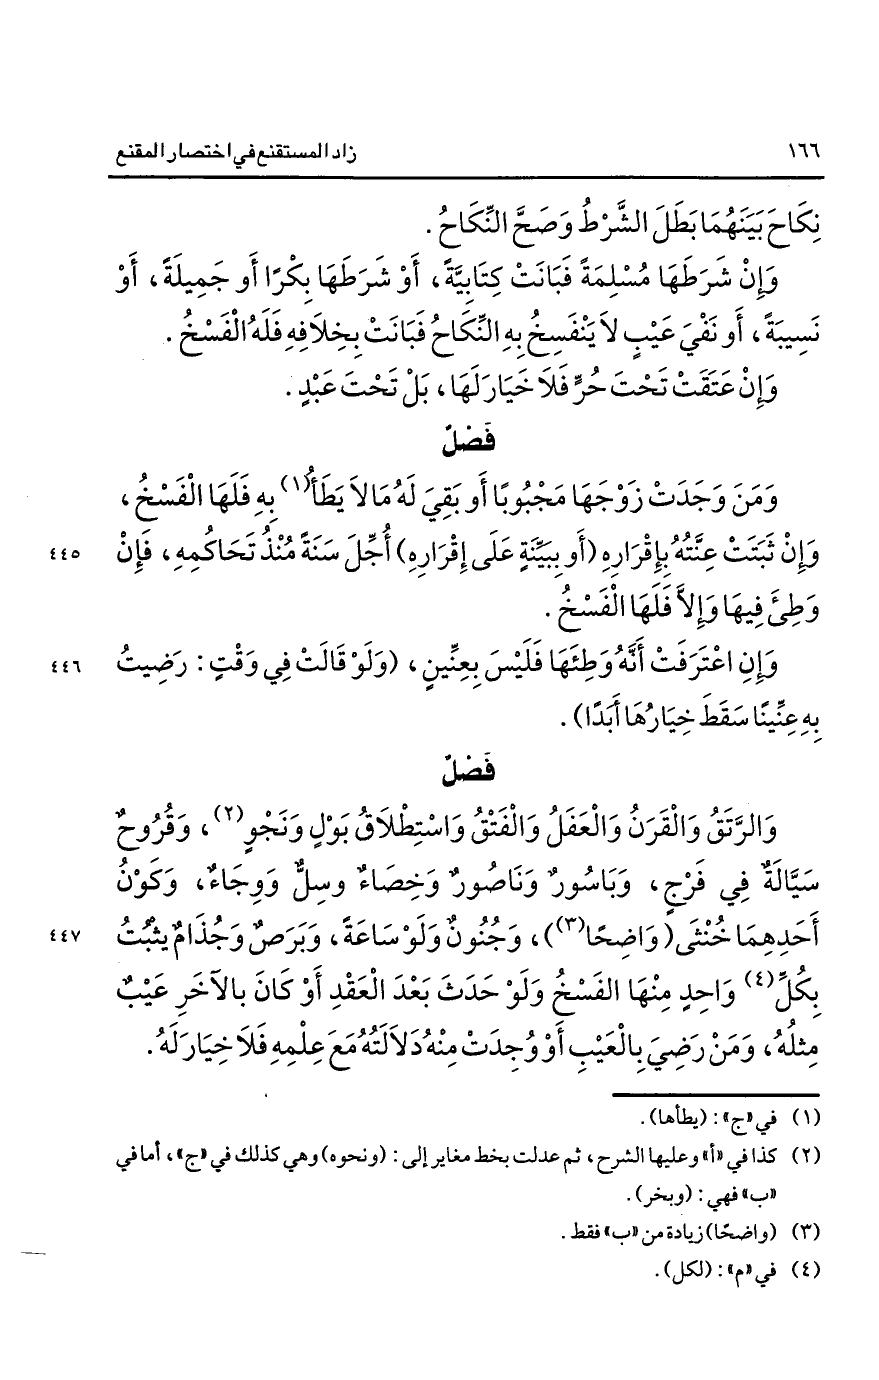 ١٦٦ زاد المستقنع في اختصار المقنع
نِكَاحَ بَيْنَهُمَا بَطَلَ الشَّرْطُ وَصَحَّ النِّكَاحُ.
وَإِنْ شَرَطَهَا مُسْلِمَةً فَبَانَتْ كِتَابِيَّةً، أَوْ شَرَطَهَا بِكْرًا أَو جَمِيلَةً، أَوْ
نَسِيبَةً، أَو نَفْيَ عَيْبٍ لاَ يَنْفَسِخُ بِهِ النِّكَاحُ فَبَانَتْ بِخِلاَفِهِ فَلَهُ الْفَسْخُ.
وَإِنْ عَتَقَتْ تَحْتَ حُرٍّ فَلاَ خَيَارَ لَهَا، بَلْ تَحْتَ عَبْدٍ.
فَصْلٌ
وَمَنَ وَجَدَتْ زَوْجَهَا مَجْبُوبًا أَو بَقِيَ لَهُ مَا لاَ يَطَأُ(١) بِهِ فَلَهَا الْفَسْخُ،
وَإِنْ ثَبَتَتْ عِنَّتُهُ بِإِقْرَارِهِ (أَو بِبَيِّنَةٍ عَلَى إِقْرَارِهِ) أُجِّلَ سَنَةً مُنْذُ تَحَاكُمِهِ، فَإِنْ ٤٤٥
وَطِئَ فِيهَا وَإِلاَّ فَلَهَا الْفَسْخُ.
وَإِنِ اعْتَرَفَتْ أَنَّهُ وَطِئَهَا فَلَيْسَ بِعِنِّينٍ، (وَلَوْ قَالَتْ فِي وَقْتٍ: رَضِيتُ ٤٤٦
بِهِ عِنِّينًا سَقَطَ خِيَارُهَا أَبَدًا).
فَصْلٌ
وَالرَّتَقُ وَالْقَرَنُ وَالْعَفَلُ وَالْفَتْقُ وَاسْتِطْلَاقُ بَوْلٍ وَنَجْوٍ(٢)، وَقُرُوحٌ
سَيَّالَةٌ فِي فَرْجٍ، وَبَاسُورٌ وَنَاصُورٌ وَخِصَاءٌ وسِلٌّ وَوِجَاءٌ، وَكَوْنُ
أَحَدِهِمَا خُنْثَى (وَاضِحًا(٣))، وَجُنُونٌ وَلَوْ سَاعَةً، وَبَرَصٌ وَجُذَامٌ يَثْبُتُ ٤٤٧
بِكُلِّ(٤) وَاحِدٍ مِنْهَا الفَسْخُ وَلَوْ حَدَثَ بَعْدَ الْعَقْدِ أَوْ كَانَ بالآخَرِ عَيْبٌ
مِثلُهُ، وَمَنْ رَضِيَ بِالْعَيْبِ أَوْ وُجِدَتْ مِنْهُ دَلاَلَتُهُ مَعَ عِلْمِهِ فَلاَ خِيَارَ لَهُ.
(١) في «ج»: (يطأها).
(٢) كذا في «أ» وعليها الشرح، ثم عدلت بخط مغاير إلى: (ونحوه) وهي كذلك في «ج»، أما في
«ب» فهي: (وبخر).
(٣) (واضحًا) زيادة من «ب» فقط.
(٤) في «م»: (لكل).